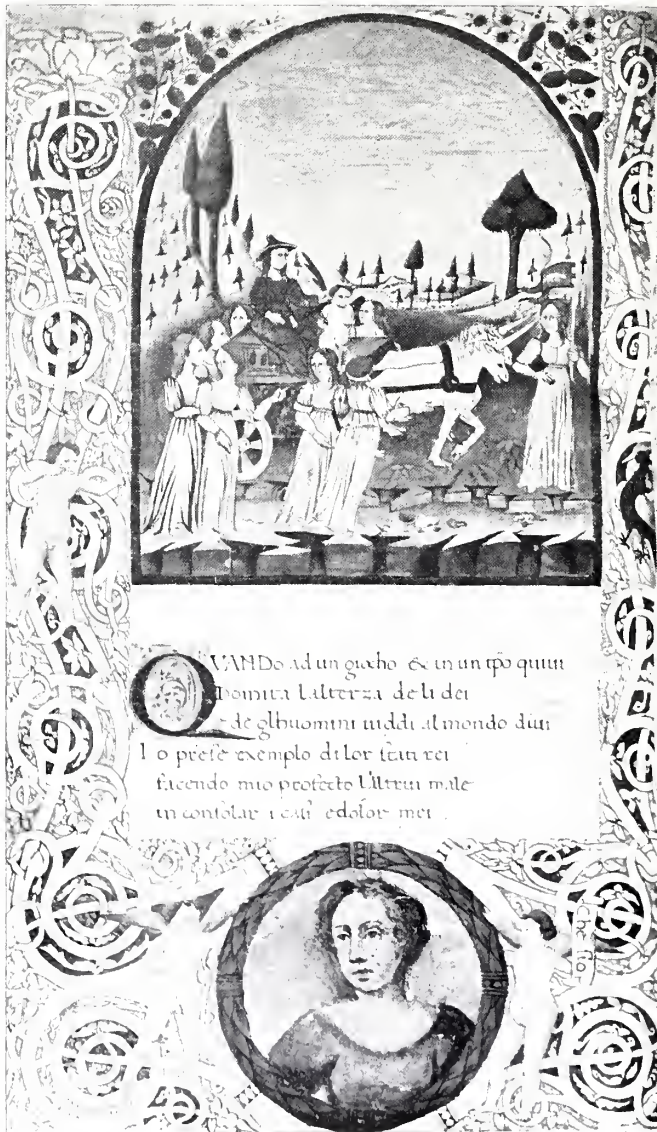 QVANDo ad un giocho & in un tpo quiui
Domita lalterza de li dei
& de glhuomini uiddi al mondo diui
I o prese exemplo di lor stati rei
facendo mio profecto laltrui male
in consolar i casi e dolor mei